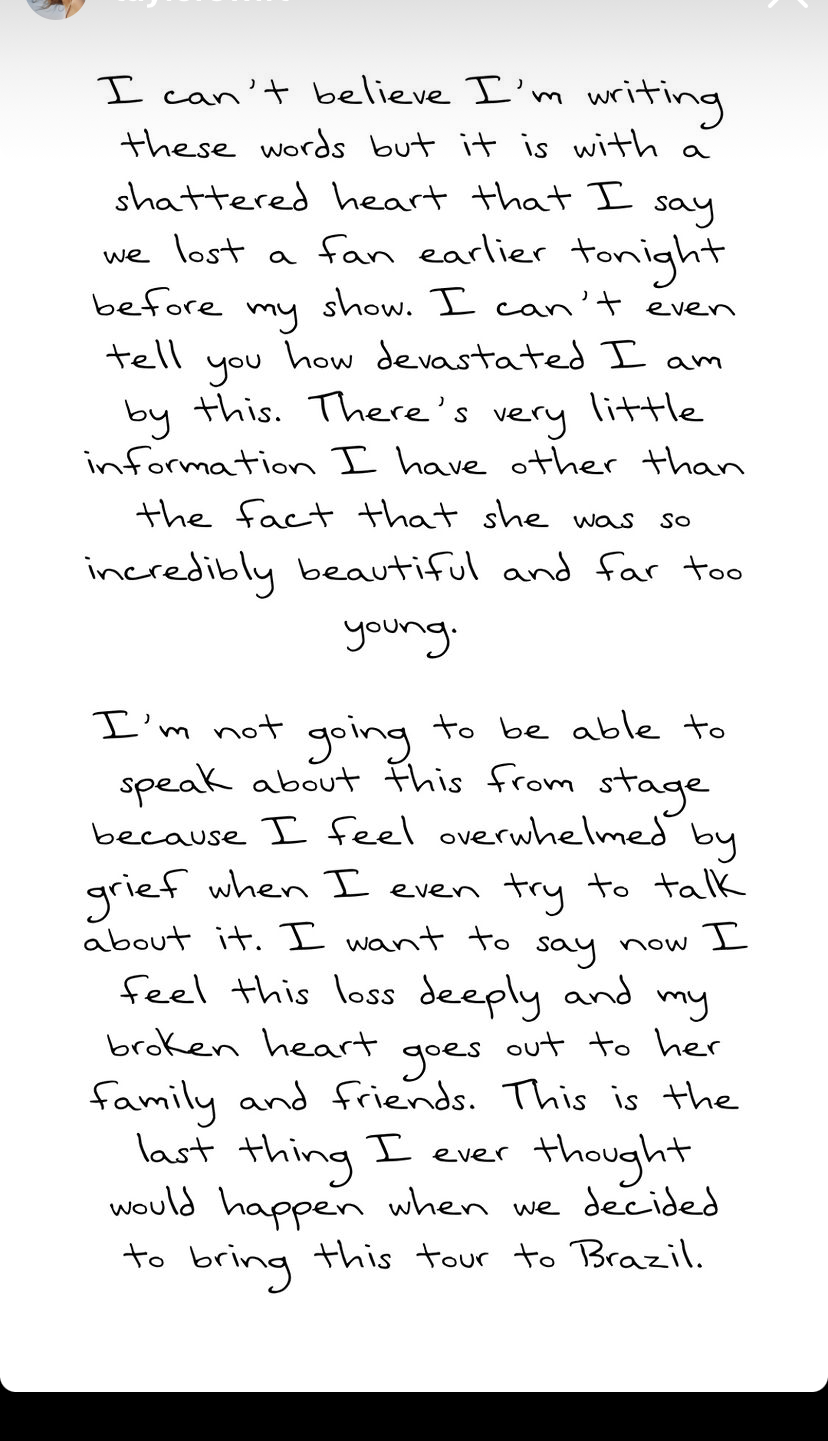 I can't believe I'm writing
these words but it is with a
shattered heart that I say
we lost a fan earlier tonight
before my show. I can't even
tell you how devastated I am
by this. There's very little
information I have other than
the fact that she was so
incredibly beautiful and far too
young.
I'm not going to be able to
speak about this from stage
because I feel overwhelmed by
grief when I even try to talk
about it. I want to say now I
feel this loss deeply and my
broken heart goes out to her
family and friends. This is the
last thing I ever thought
would happen when we decided
to bring this tour to Brazil.